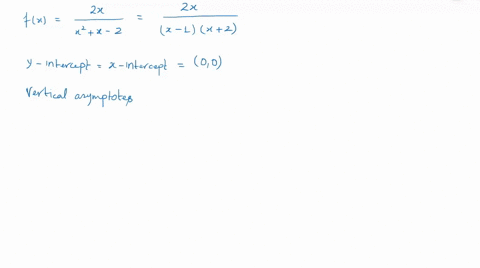 f(x) = 2x / x² + x - 2 = 2x / (x - 1) (x + 2)
y - intercept = x - intercept = (0,0)
Vertical asymptotes